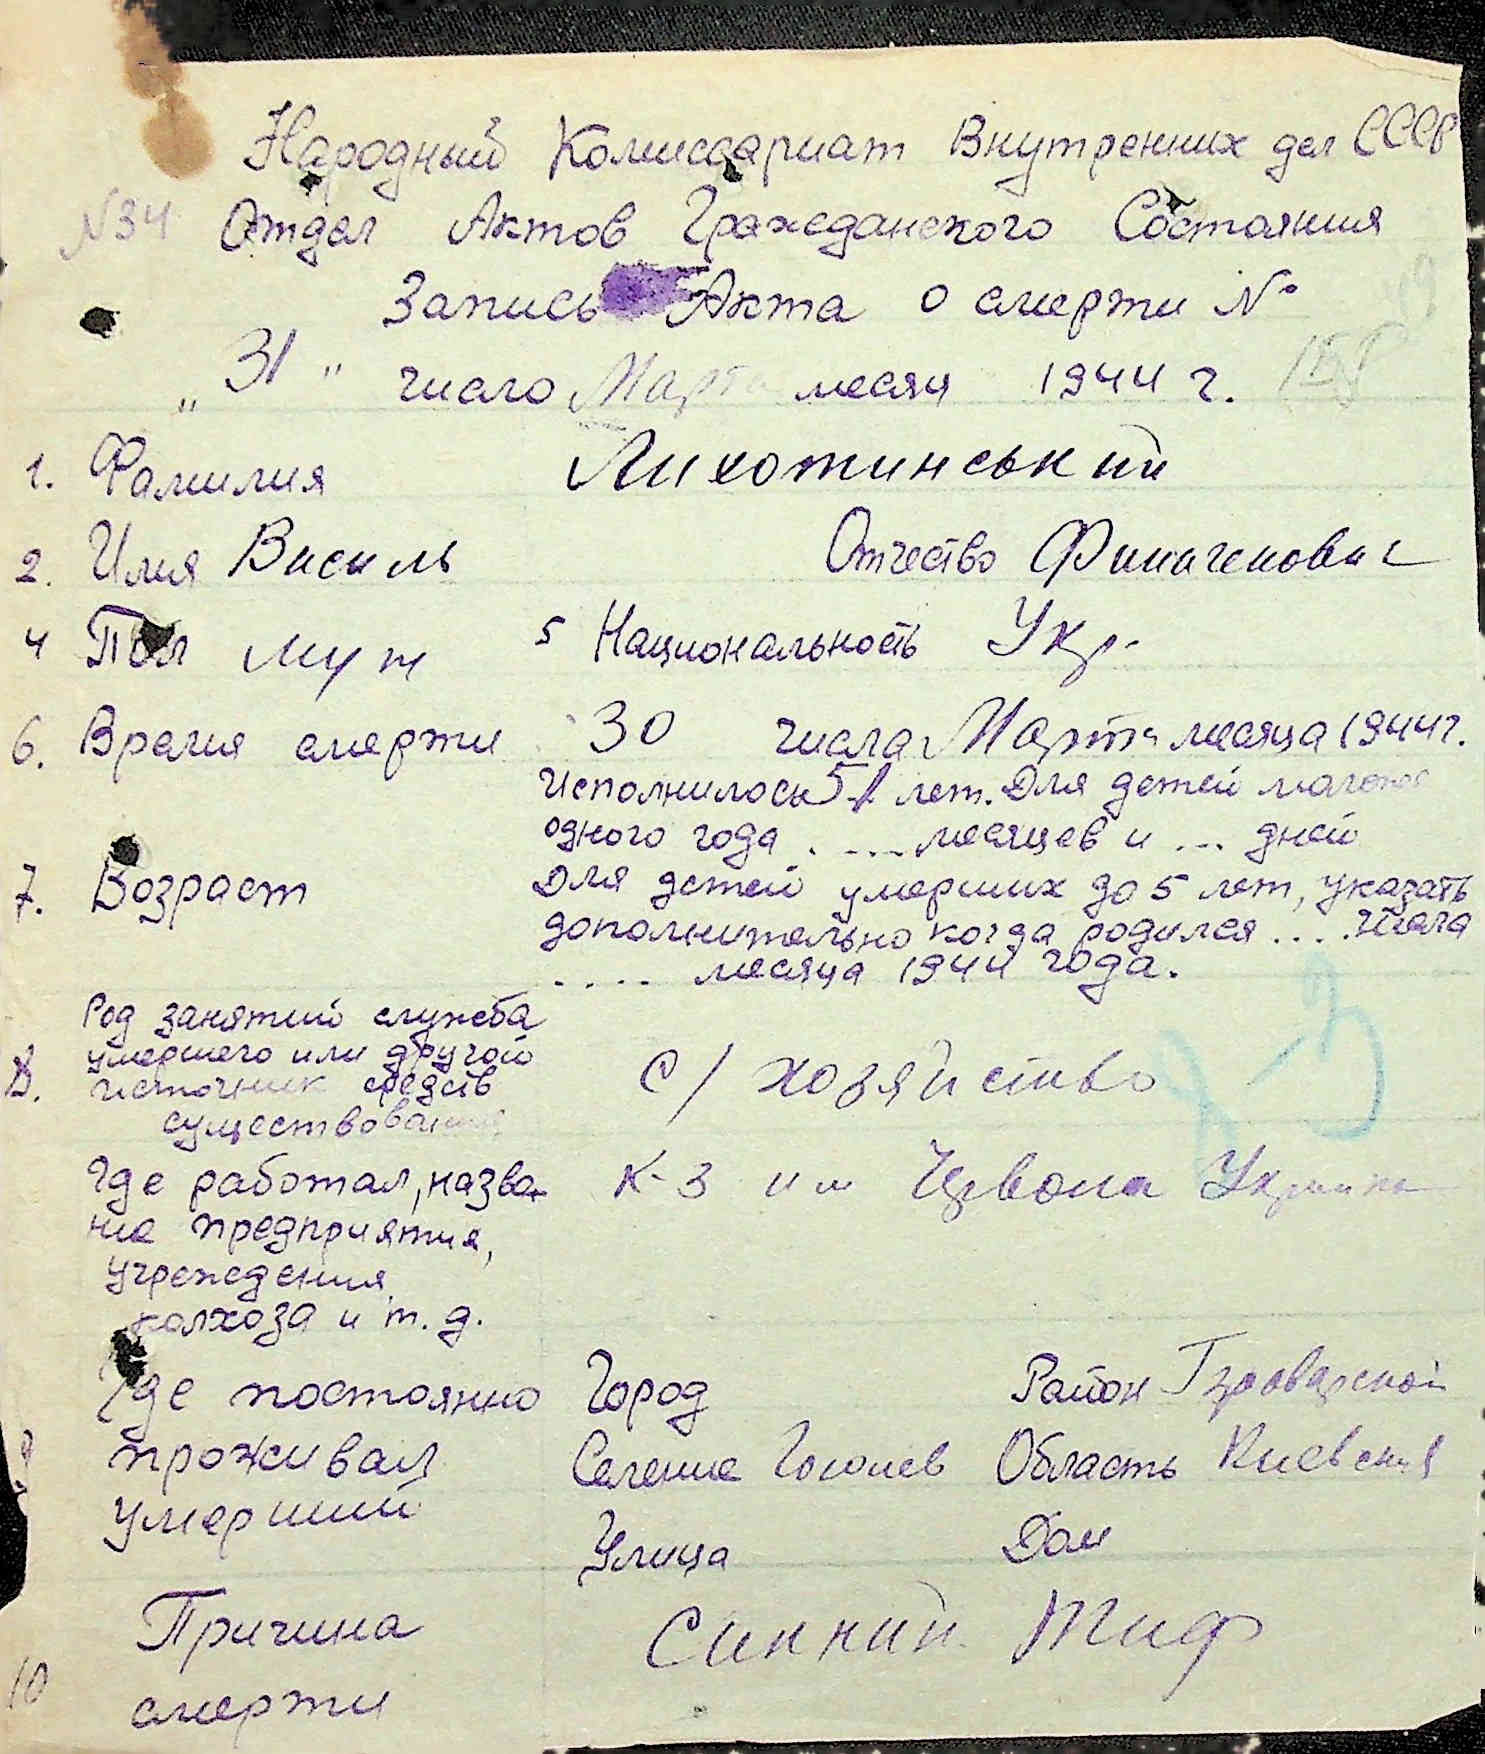 Народный Комиссариат Внутренних дел СССР
N34 Отдел Актов Гражеданского Состояния
Запись Акта о смерти №
"31" число Марта месяц 1944 г.
1. Фамилия Лихотинський
2. Имя Василь Отчество
4 Пол муж 5 Национальность Укр.
6. Время смерти 30 числа Марта месяца 1944г.
Исполнилось 51 лет. Для детей моложе
одного года .... месяцев и ... дней
7. Возраст Для детей умерших до 5 лет, указать
дополнительно когда родился .... числа
.... месяца 1944 года.
Род занятий служба
умершего или другой
8. источник средств С/хозяйство
существования
Где работал, назва- К-З им Червона Украина
ние предприятия,
учреждения
колхоза и т.д.
Где постоянно Город Район
9 проживал Селение Гоголев Область Киевская
умерший Улица Дом
Причина Сипний Тиф
10 смерти